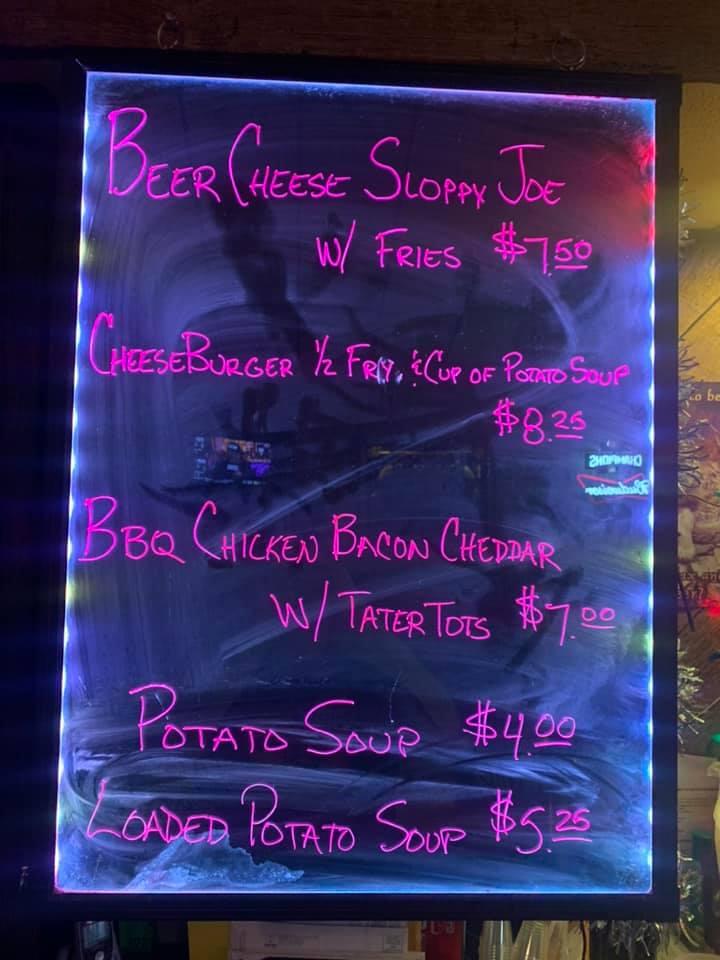 Beer Cheese Sloppy Joe
w/ Fries $7.50
CheeseBurger 1/2 Fry, & Cup of Potato Soup
$8.25
BBQ Chicken Bacon Cheddar
w/ Tater Tots $7.00
Potato Soup $4.00
Loaded Potato Soup $5.25
CHAMPIONS
Budweiser